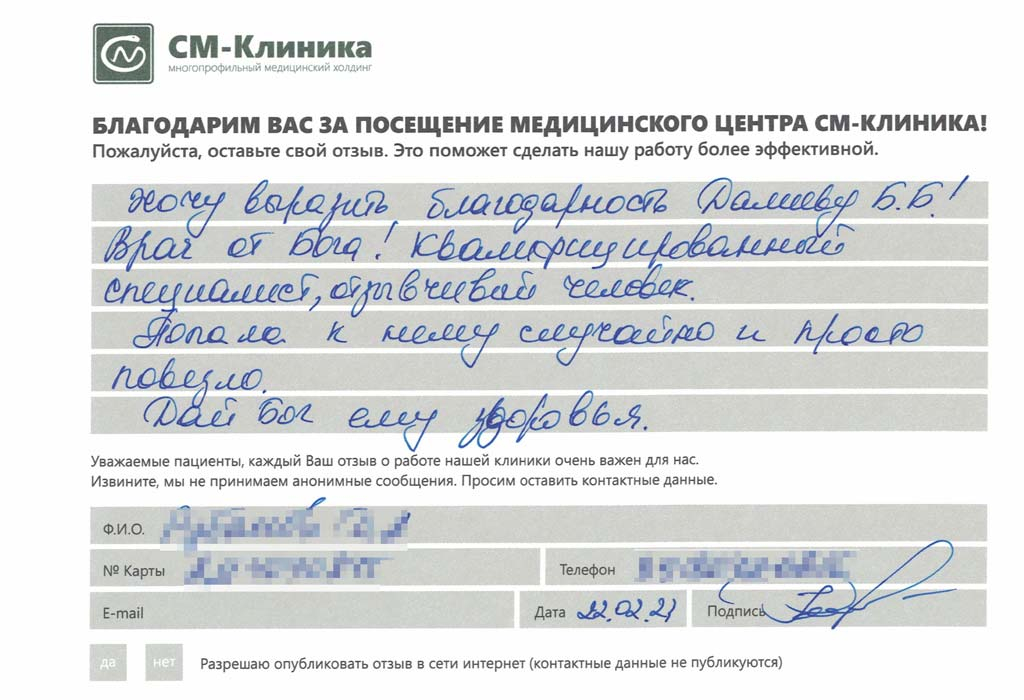 СМ-Клиника
многопрофильный медицинский холдинг
БЛАГОДАРИМ ВАС ЗА ПОСЕЩЕНИЕ МЕДИЦИНСКОГО ЦЕНТРА СМ-КЛИНИКА!
Пожалуйста, оставьте свой отзыв. Это поможет сделать нашу работу более эффективной.
Хочу выразить благодарность Далиеву Б.Б.!
Врач от Бога! Квалифицированный
специалист, отзывчивый человек.
Попала к нему случайно и просто
повезло.
Дай Бог ему здоровья.
Уважаемые пациенты, каждый Ваш отзыв о работе нашей клиники очень важен для нас.
Извините, мы не принимаем анонимные сообщения. Просим оставить контактные данные.
Ф.И.О.
№ Карты Телефон
E-mail Дата 22.02.21 Подпись
да нет Разрешаю опубликовать отзыв в сети интернет (контактные данные не публикуются)